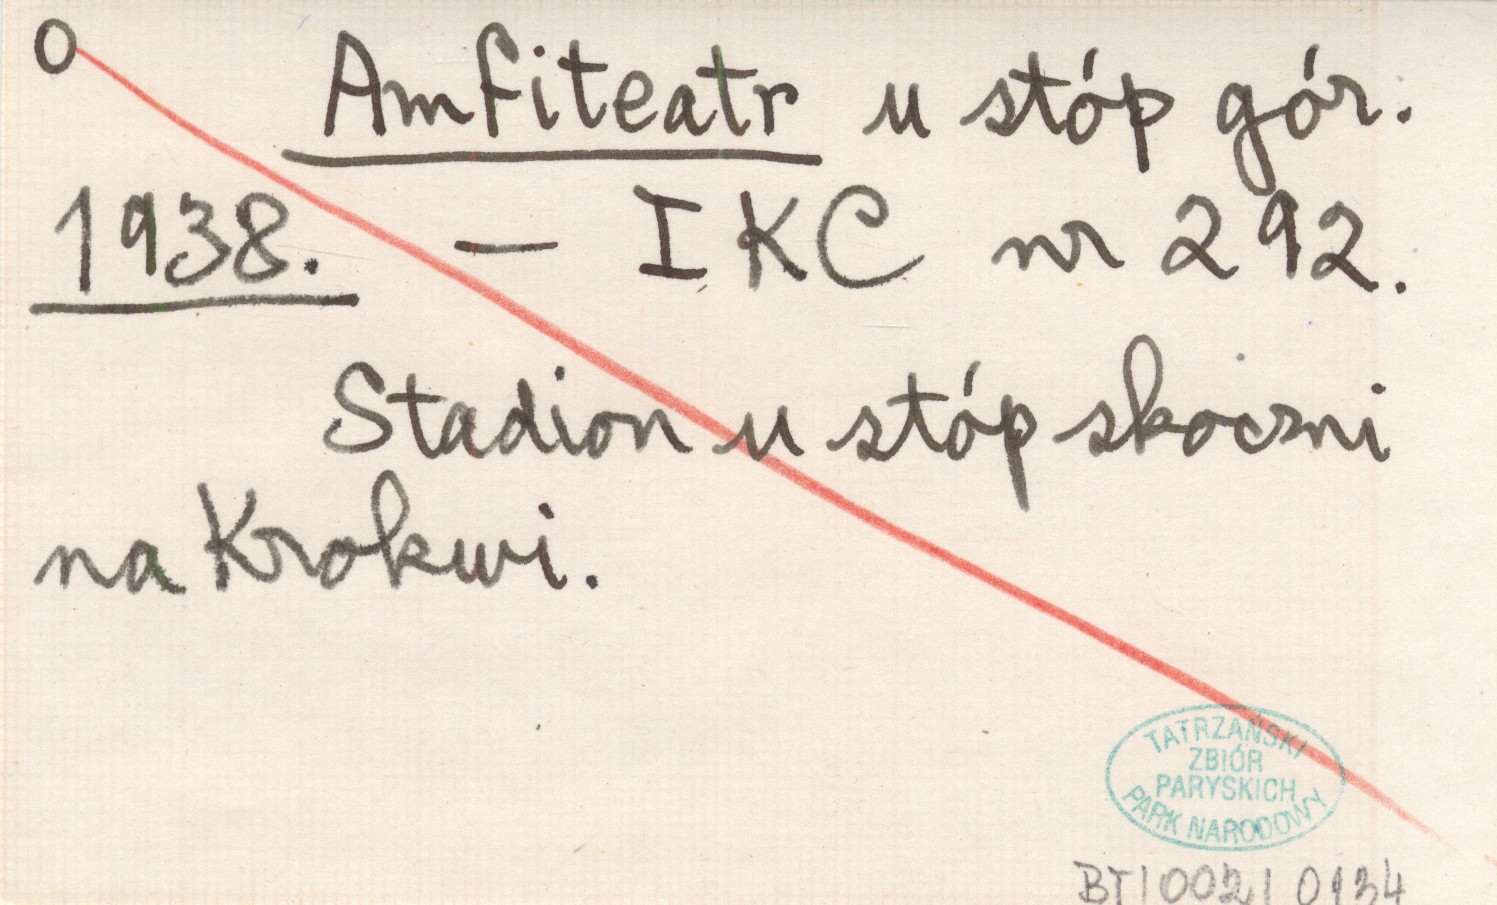 O Amfiteatr u stóp gór.
1938. – IKC nr 292.
Stadion u stóp skoczni
na Krokwi.
TATRZAŃSKI
ZBIÓR
PARYSKICH
PARK NARODOWY
BT1002/0134